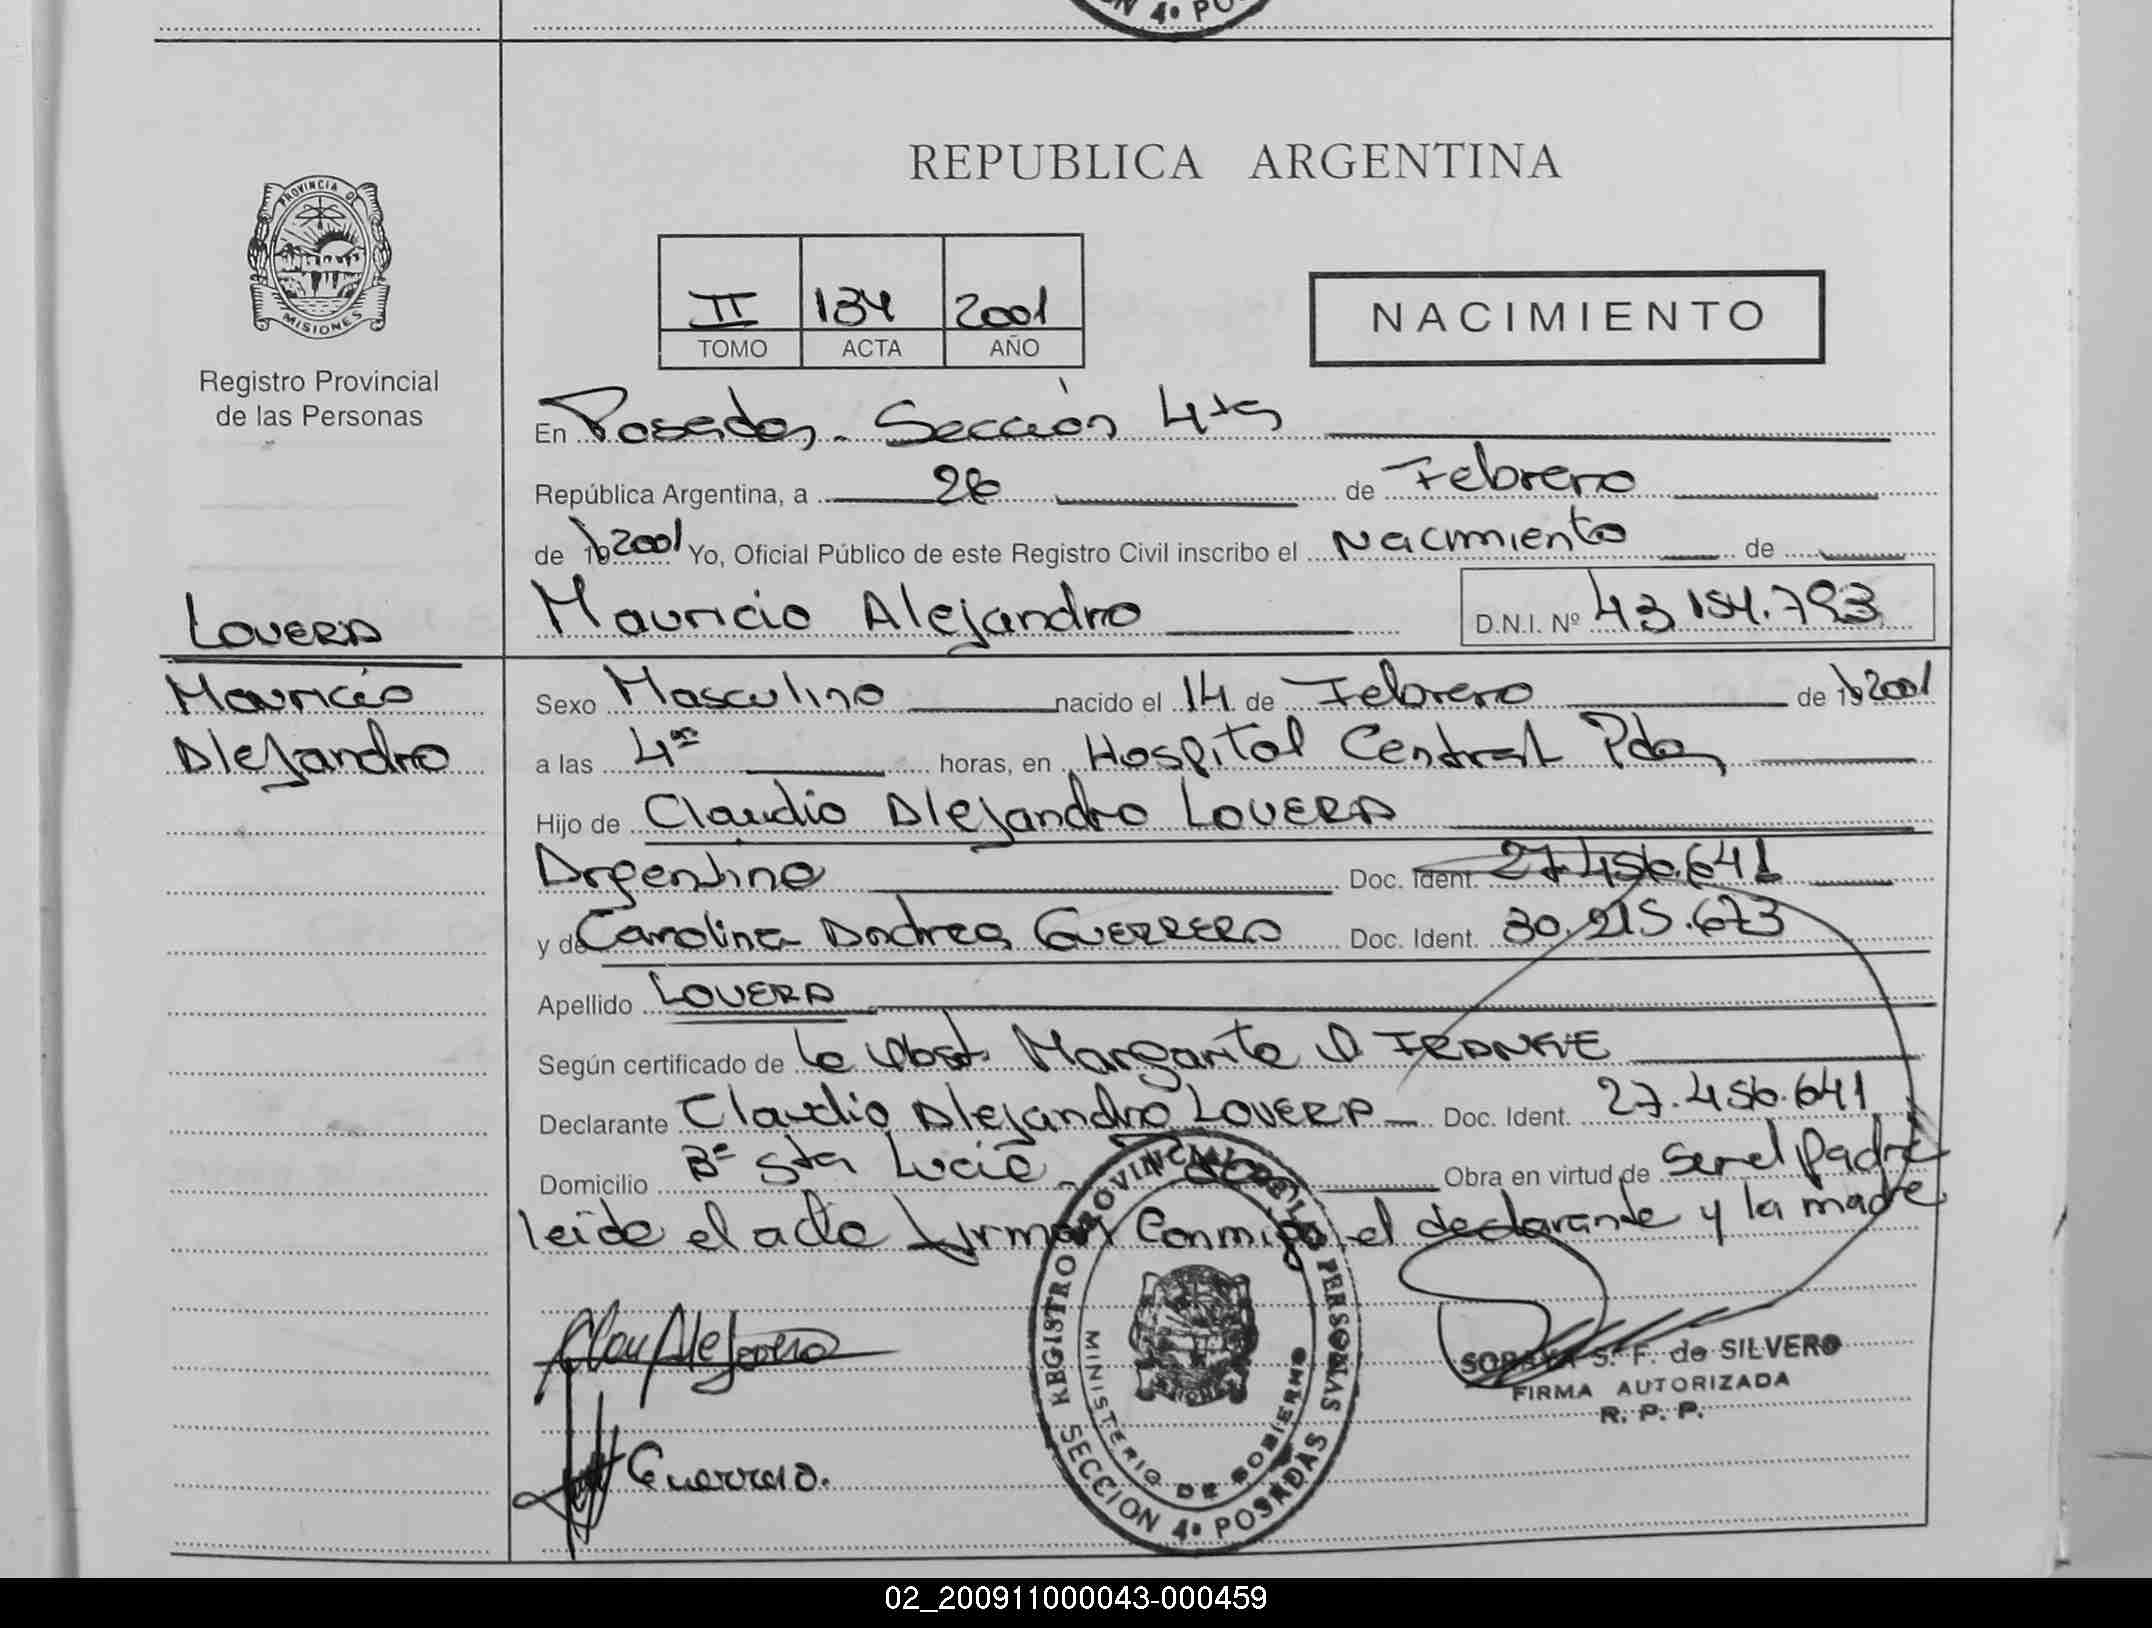 N 4ª PO
PROVINCIA D
MISIONES
Registro Provincial
de las Personas
LOVERA
Mauricio
Alejandro
REPUBLICA ARGENTINA
II 134 2001
TOMO ACTA AÑO
NACIMIENTO
En Posadas. Sección 4ta
República Argentina, a 26 de Febrero
de 19 2001 Yo, Oficial Público de este Registro Civil inscribo el Nacimiento de
Mauricio Alejandro D.N.I. Nº 43 154.793
Sexo Masculino nacido el 14 de Febrero de 19 2001
a las 4 horas, en Hospital Central Pdas
Hijo de Claudio Alejandro LOVERA
Argentino Doc. Ident. 27.456.641
y de Carolina Andrea GUERRERO Doc. Ident. 30.215.673
Apellido LOVERA
Según certificado de la Obst. Margarita FRANKE
Declarante Claudio Alejandro LOVERA Doc. Ident. 27.456.641
Domicilio Bº Sta Lucía Obra en virtud de ser el padre
leída el acta firman conmigo el declarante y la madre
Guerrero.
REGISTRO PROVINCIAL DE LAS PERSONAS
MINISTERIO DE GOBIERNO
SECCION 4ª POSADAS
SORAYA S. F. de SILVERO
FIRMA AUTORIZADA
R. P. P.
02_200911000043-000459